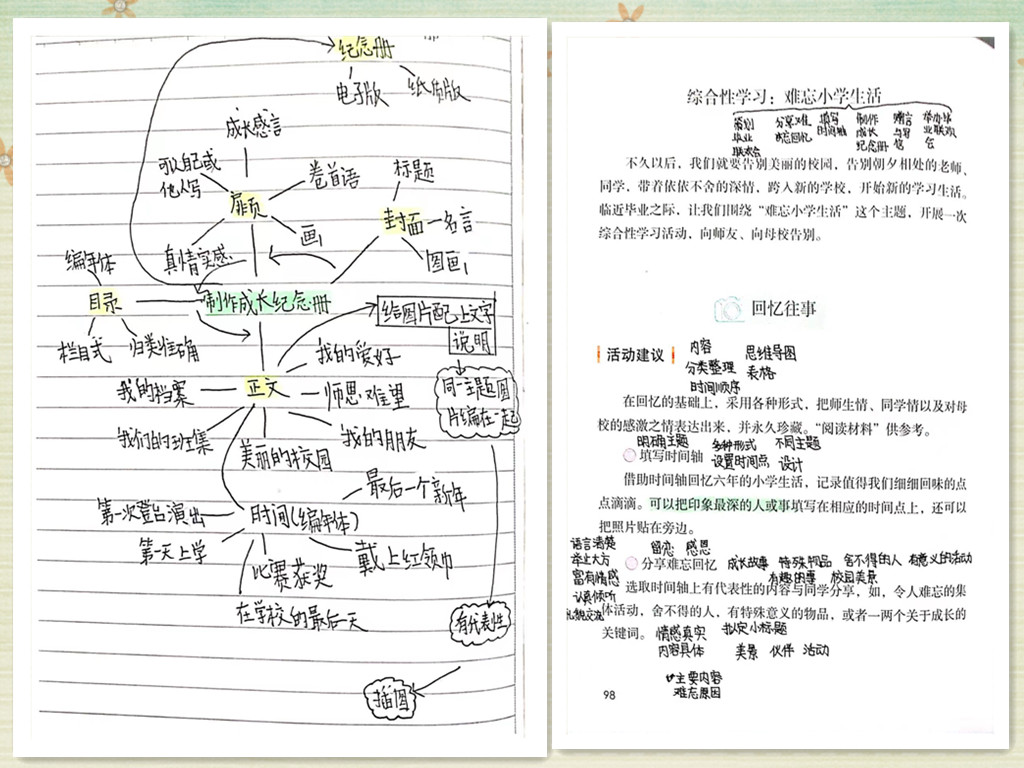 纪念册
电子版
纸质版
成长感言
可自己或
他人写
卷首语
扉页
标题
封面
名言
画
真情实感
图画
编年体
目录
制作成长纪念册
栏目式
归类准确
给图片配上文字
说明
我的爱好
我的档案
正文
师恩难望
同一主题图
片编在一起
我们的班集
美丽的校园
我的朋友
最后一个新年
第一次登台演出
时间(编年体)
第一天上学
戴上红领巾
比赛获奖
在学校的最后一天
有代表性
插图
综合性学习：难忘小学生活
告别 分享难 填写 制作 赠言 举办毕
毕业 忘回忆 时间轴 成长 与写 业联欢
联欢会 纪念册 信 会
不久以后，我们就要告别美丽的校园，告别朝夕相处的老师、
同学，带着依依不舍的深情，跨入新的学校，开始新的学习生活。
临近毕业之际，让我们围绕“难忘小学生活”这个主题，开展一次
综合性学习活动，向师友、向母校告别。
回忆往事
活动建议
内容 思维导图
分类整理 表格
时间顺序
在回忆的基础上，采用各种形式，把师生情、同学情以及对母
校的感激之情表达出来，并永久珍藏。“阅读材料”供参考。
明确主题 多种形式 不同主题
填写时间轴 设置时间点 设计
借助时间轴回忆六年的小学生活，记录值得我们细细回味的点
点滴滴。可以把印象最深的人或事填写在相应的时间点上，还可以
把照片贴在旁边。
语言清楚
举止大方
富有情感
认真倾听
礼貌交流
留恋 感恩
分享难忘回忆 成长故事 特殊物品 舍不得的人 有意义的活动
有趣的事 校园美景
选取时间轴上有代表性的内容与同学分享，如，令人难忘的集
体活动，舍不得的人，有特殊意义的物品，或者一两个关于成长的
关键词。 情感真实 拟定小标题
内容具体 美景 伙伴 活动
主要内容
难忘原因
98